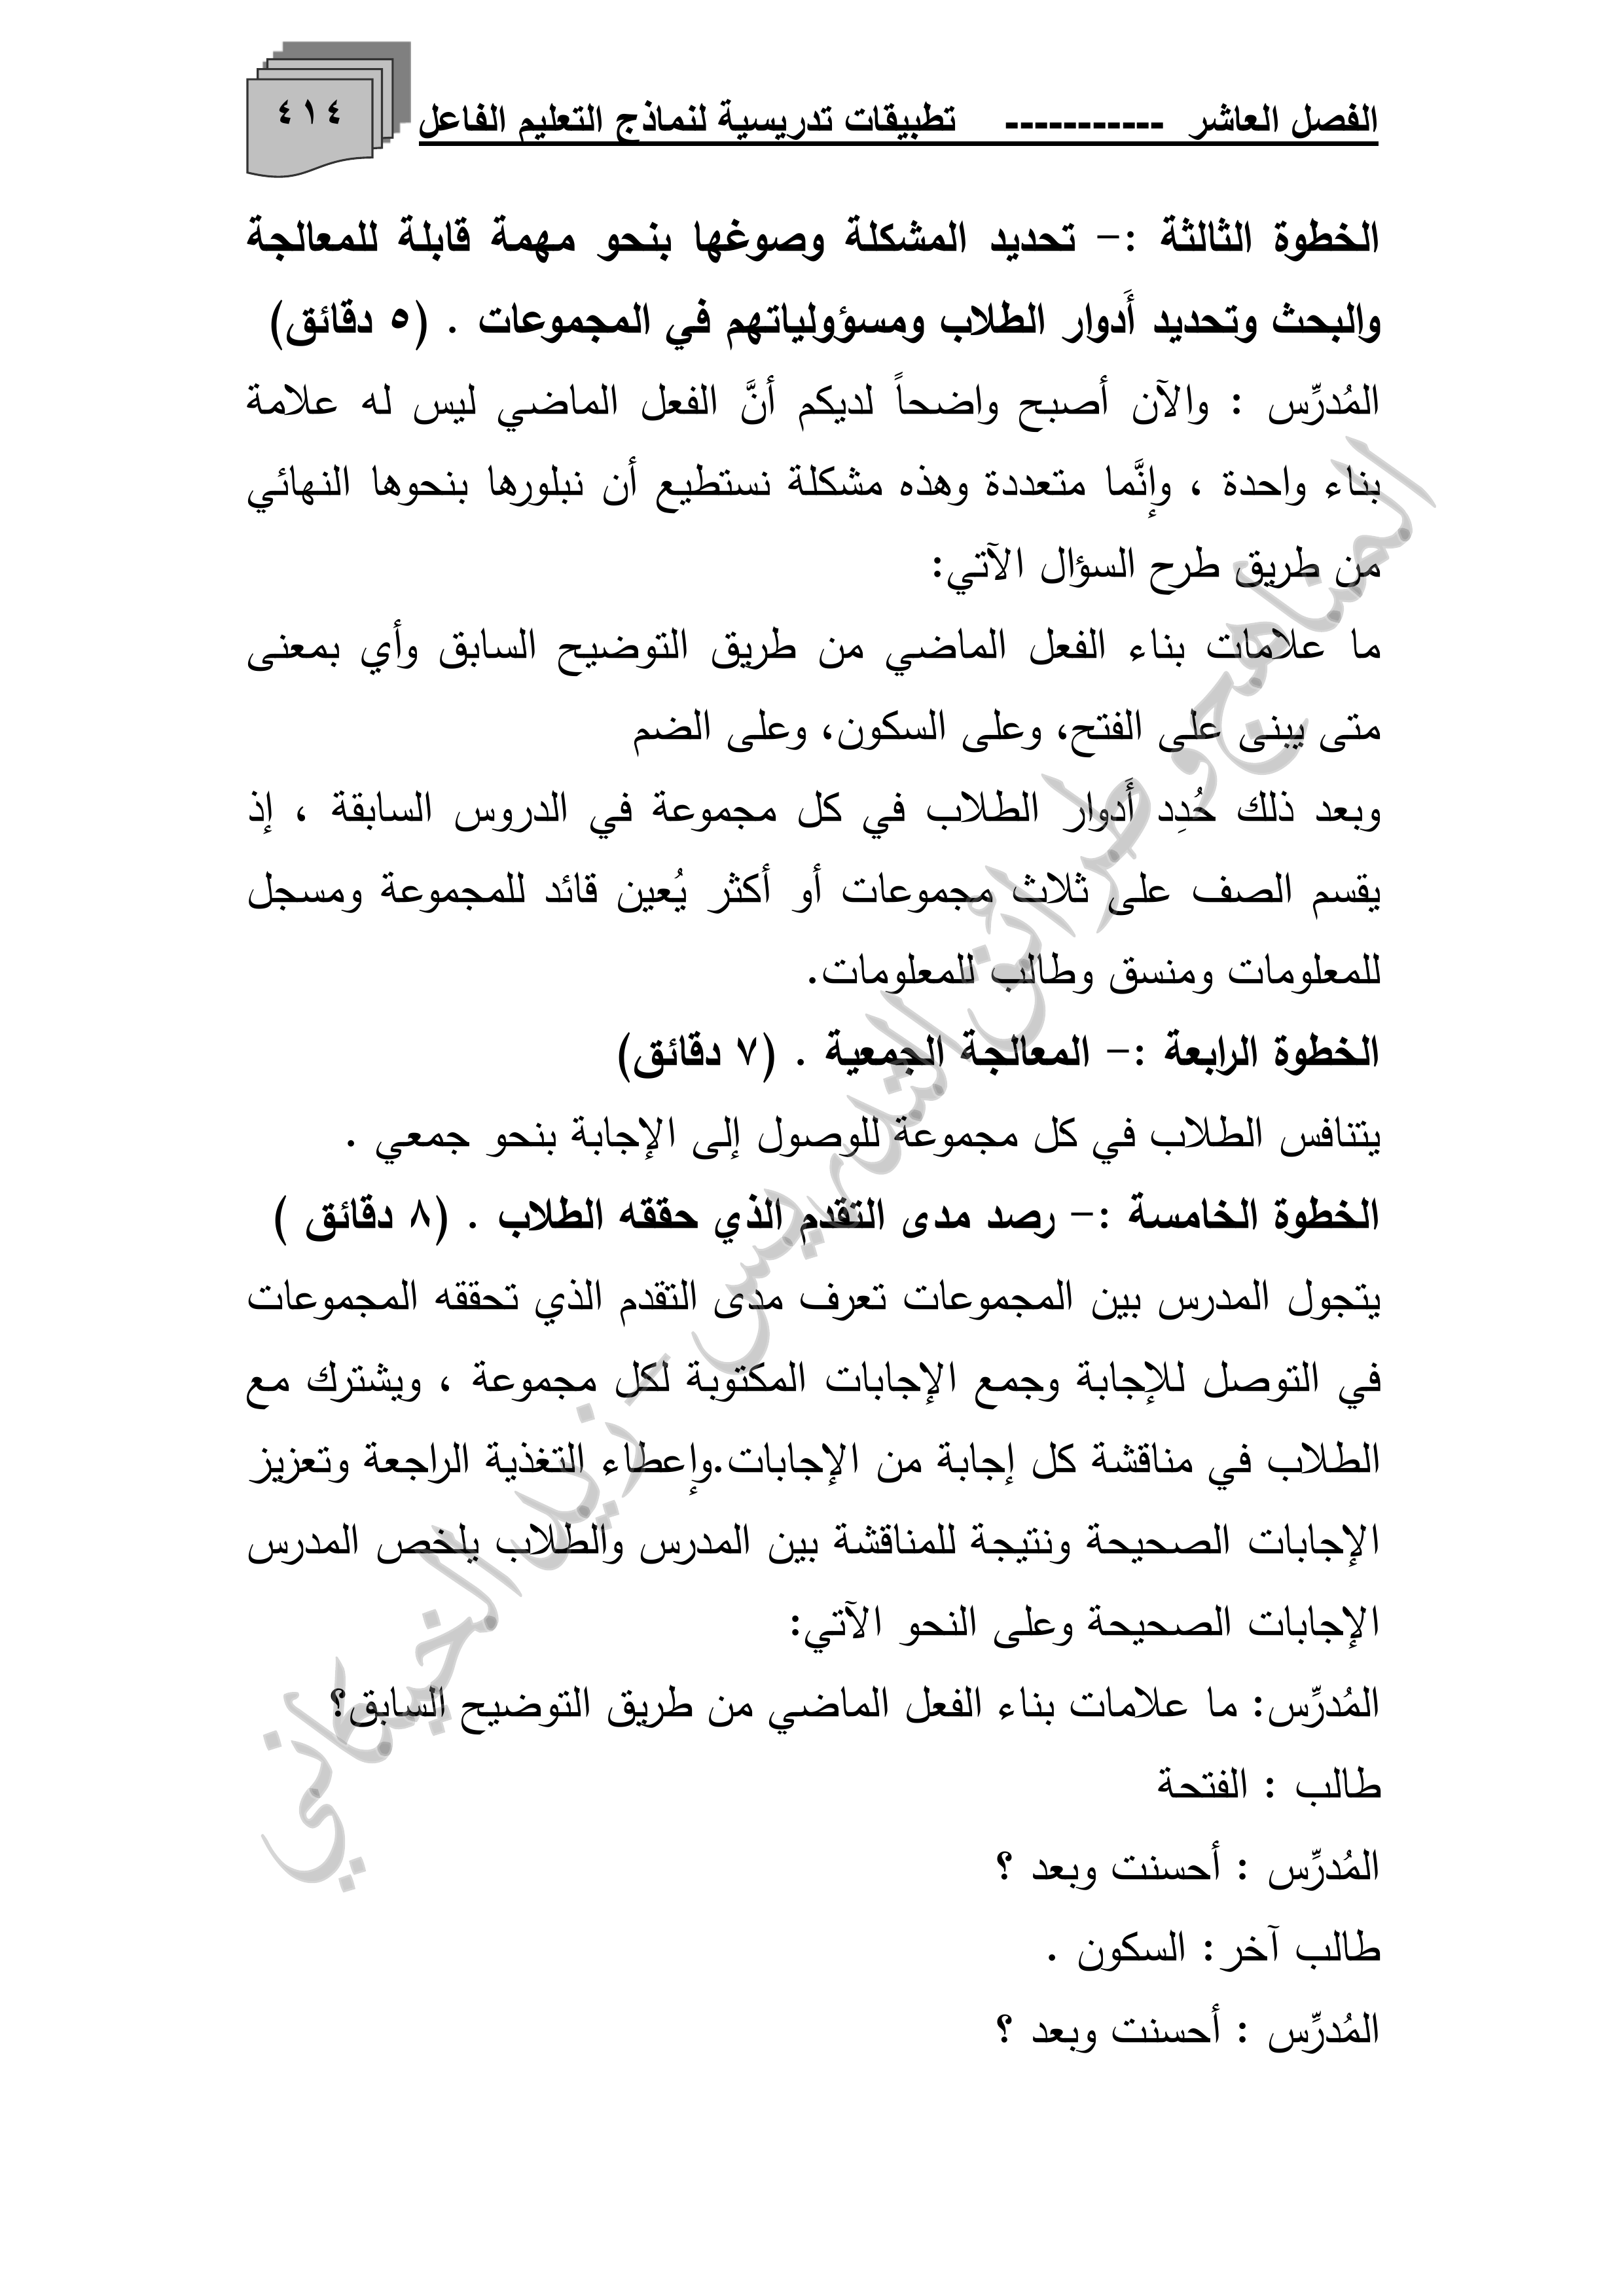 الفصل العاشر ----------- تطبيقات تدريسية لنماذج التعليم الفاعل
٤١٤
الخطوة الثالثة :- تحديد المشكلة وصوغها بنحو مهمة قابلة للمعالجة
والبحث وتحديد أَدوار الطلاب ومسؤولياتهم في المجموعات . (٥ دقائق)
المُدرِّس : والآن أصبح واضحاً لديكم أنَّ الفعل الماضي ليس له علامة
بناء واحدة ، وإنَّما متعددة وهذه مشكلة نستطيع أن نبلورها بنحوها النهائي
من طريق طرح السؤال الآتي:
ما علامات بناء الفعل الماضي من طريق التوضيح السابق وأي بمعنى
متى يبنى على الفتح، وعلى السكون، وعلى الضم
وبعد ذلك حُدِد أَدوار الطلاب في كل مجموعة في الدروس السابقة ، إذ
يقسم الصف على ثلاث مجموعات أو أكثر يُعين قائد للمجموعة ومسجل
للمعلومات ومنسق وطالب للمعلومات.
الخطوة الرابعة :- المعالجة الجمعية . (٧ دقائق)
يتنافس الطلاب في كل مجموعة للوصول إلى الإجابة بنحو جمعي .
الخطوة الخامسة :- رصد مدى التقدم الذي حققه الطلاب . (٨ دقائق )
يتجول المدرس بين المجموعات تعرف مدى التقدم الذي تحققه المجموعات
في التوصل للإجابة وجمع الإجابات المكتوبة لكل مجموعة ، ويشترك مع
الطلاب في مناقشة كل إجابة من الإجابات.وإعطاء التغذية الراجعة وتعزيز
الإجابات الصحيحة ونتيجة للمناقشة بين المدرس والطلاب يلخص المدرس
الإجابات الصحيحة وعلى النحو الآتي:
المُدرِّس: ما علامات بناء الفعل الماضي من طريق التوضيح السابق؟
طالب : الفتحة
المُدرِّس : أحسنت وبعد ؟
طالب آخر: السكون .
المُدرِّس : أحسنت وبعد ؟
المناهج وطرائق التدريس - زيد الخيكاني